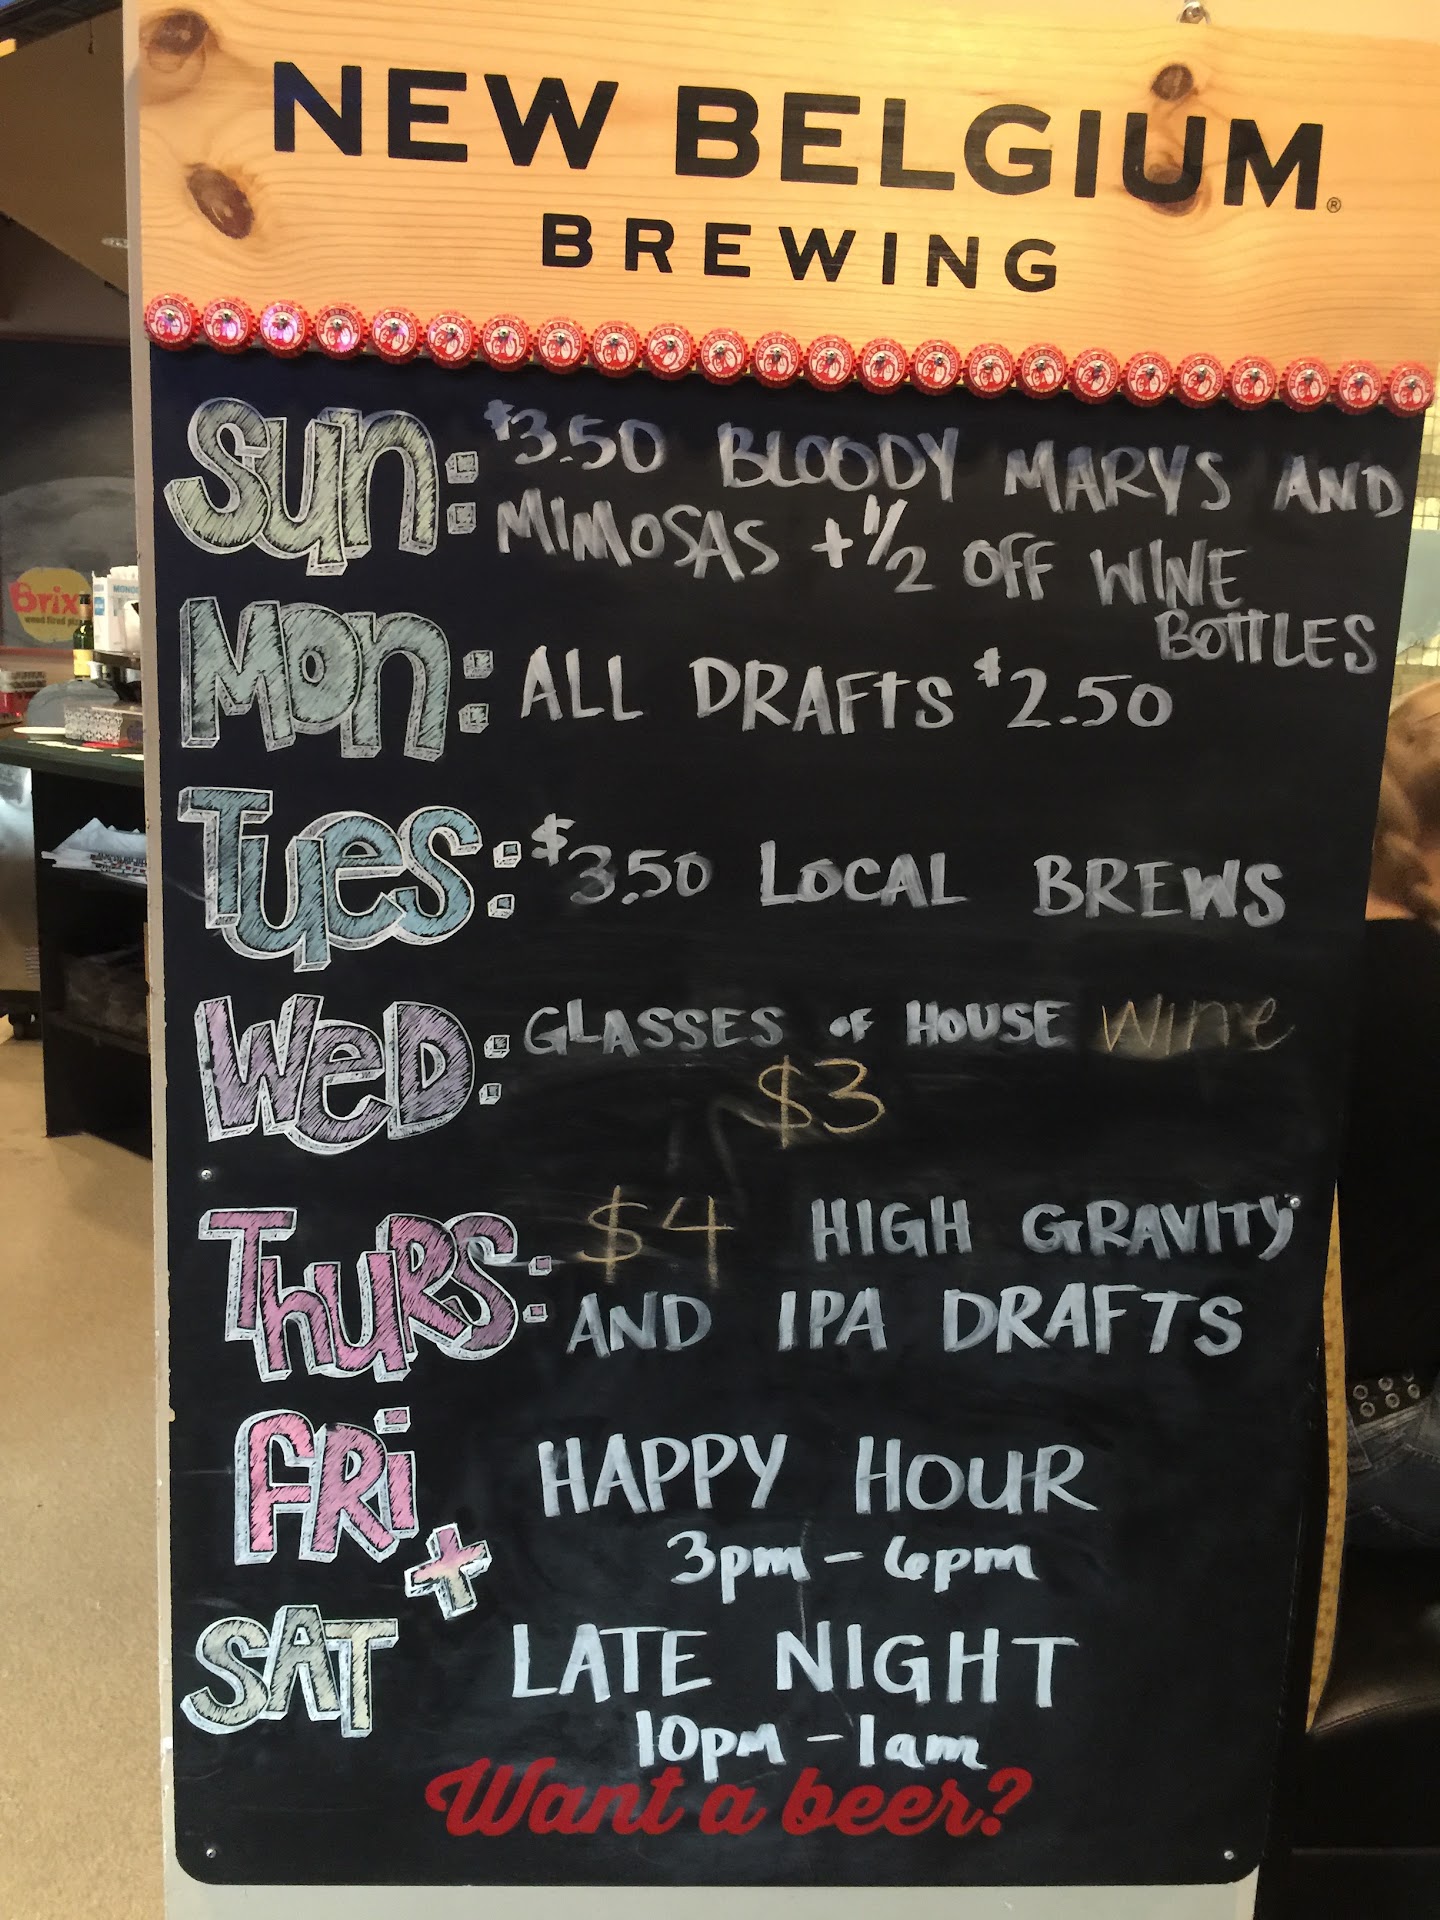 NEW BELGIUM®
BREWING
Sun: $3.50 BLOODY MARYS AND
MIMOSAS + 1/2 OFF WINE
BOTTLES
Mon: ALL DRAFTS $2.50
Tues: $3.50 LOCAL BREWS
WeD: GLASSES OF HOUSE Wine
$3
ThuRS: $4 HIGH GRAVITY
AND IPA DRAFTS
FRi + SAT
HAPPY HOUR
3pm - 6pm
LATE NIGHT
10pm - 1am
Want a beer?
Brix
wood fired